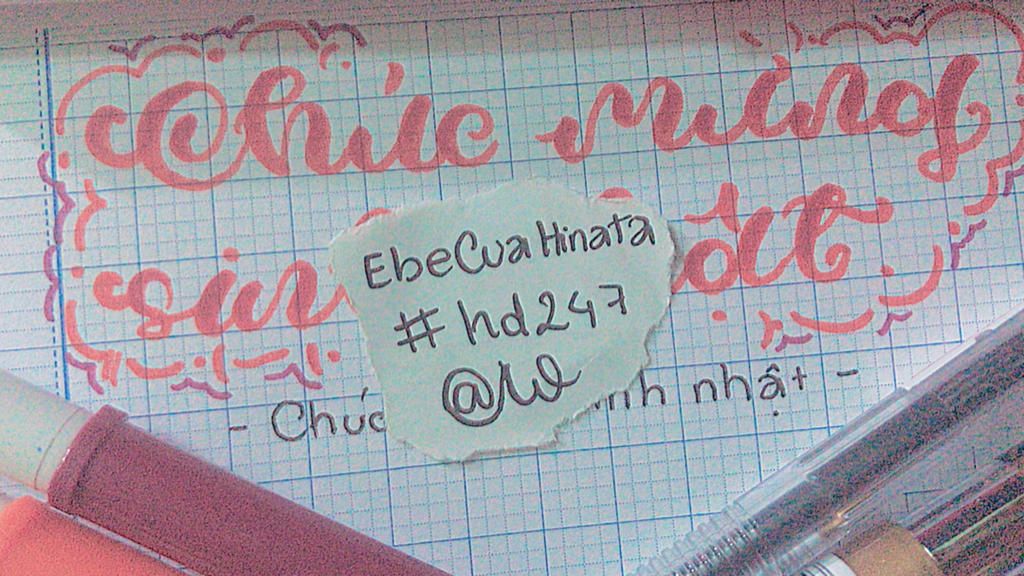 Chúc mừng
sin
EbeCuaHinata
#hd247
@W
- Chúc nh nhật -